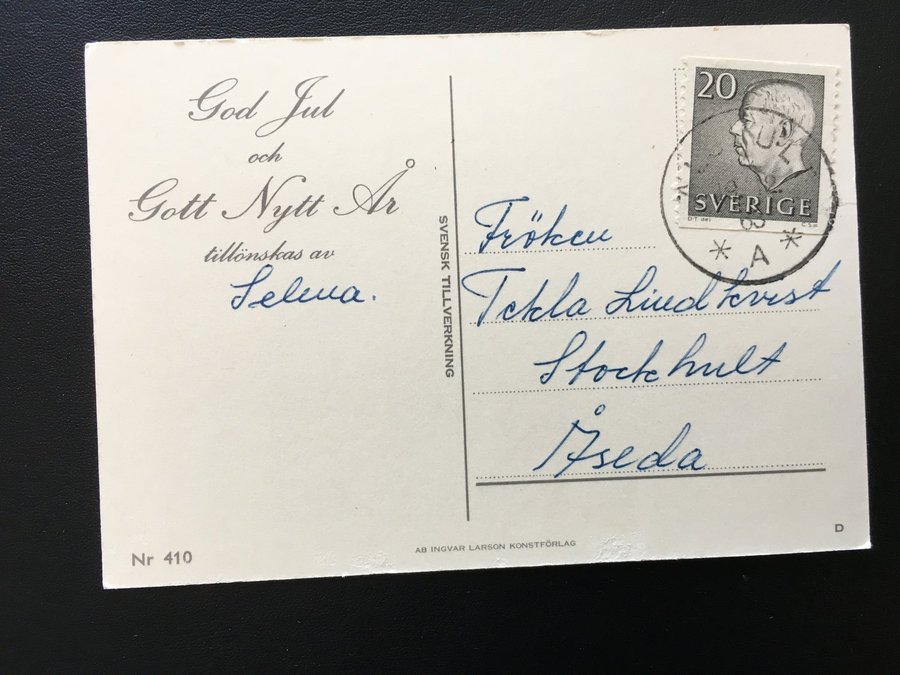 God Jul
och
Gott Nytt År
tillönskas av
Selma.
SVENSK TILLVERKNING
20
SVERIGE
* A *
Fröken
Tekla Lindkvist
Stockhult
Åseda
Nr 410
AB INGVAR LARSON KONSTFÖRLAG
D